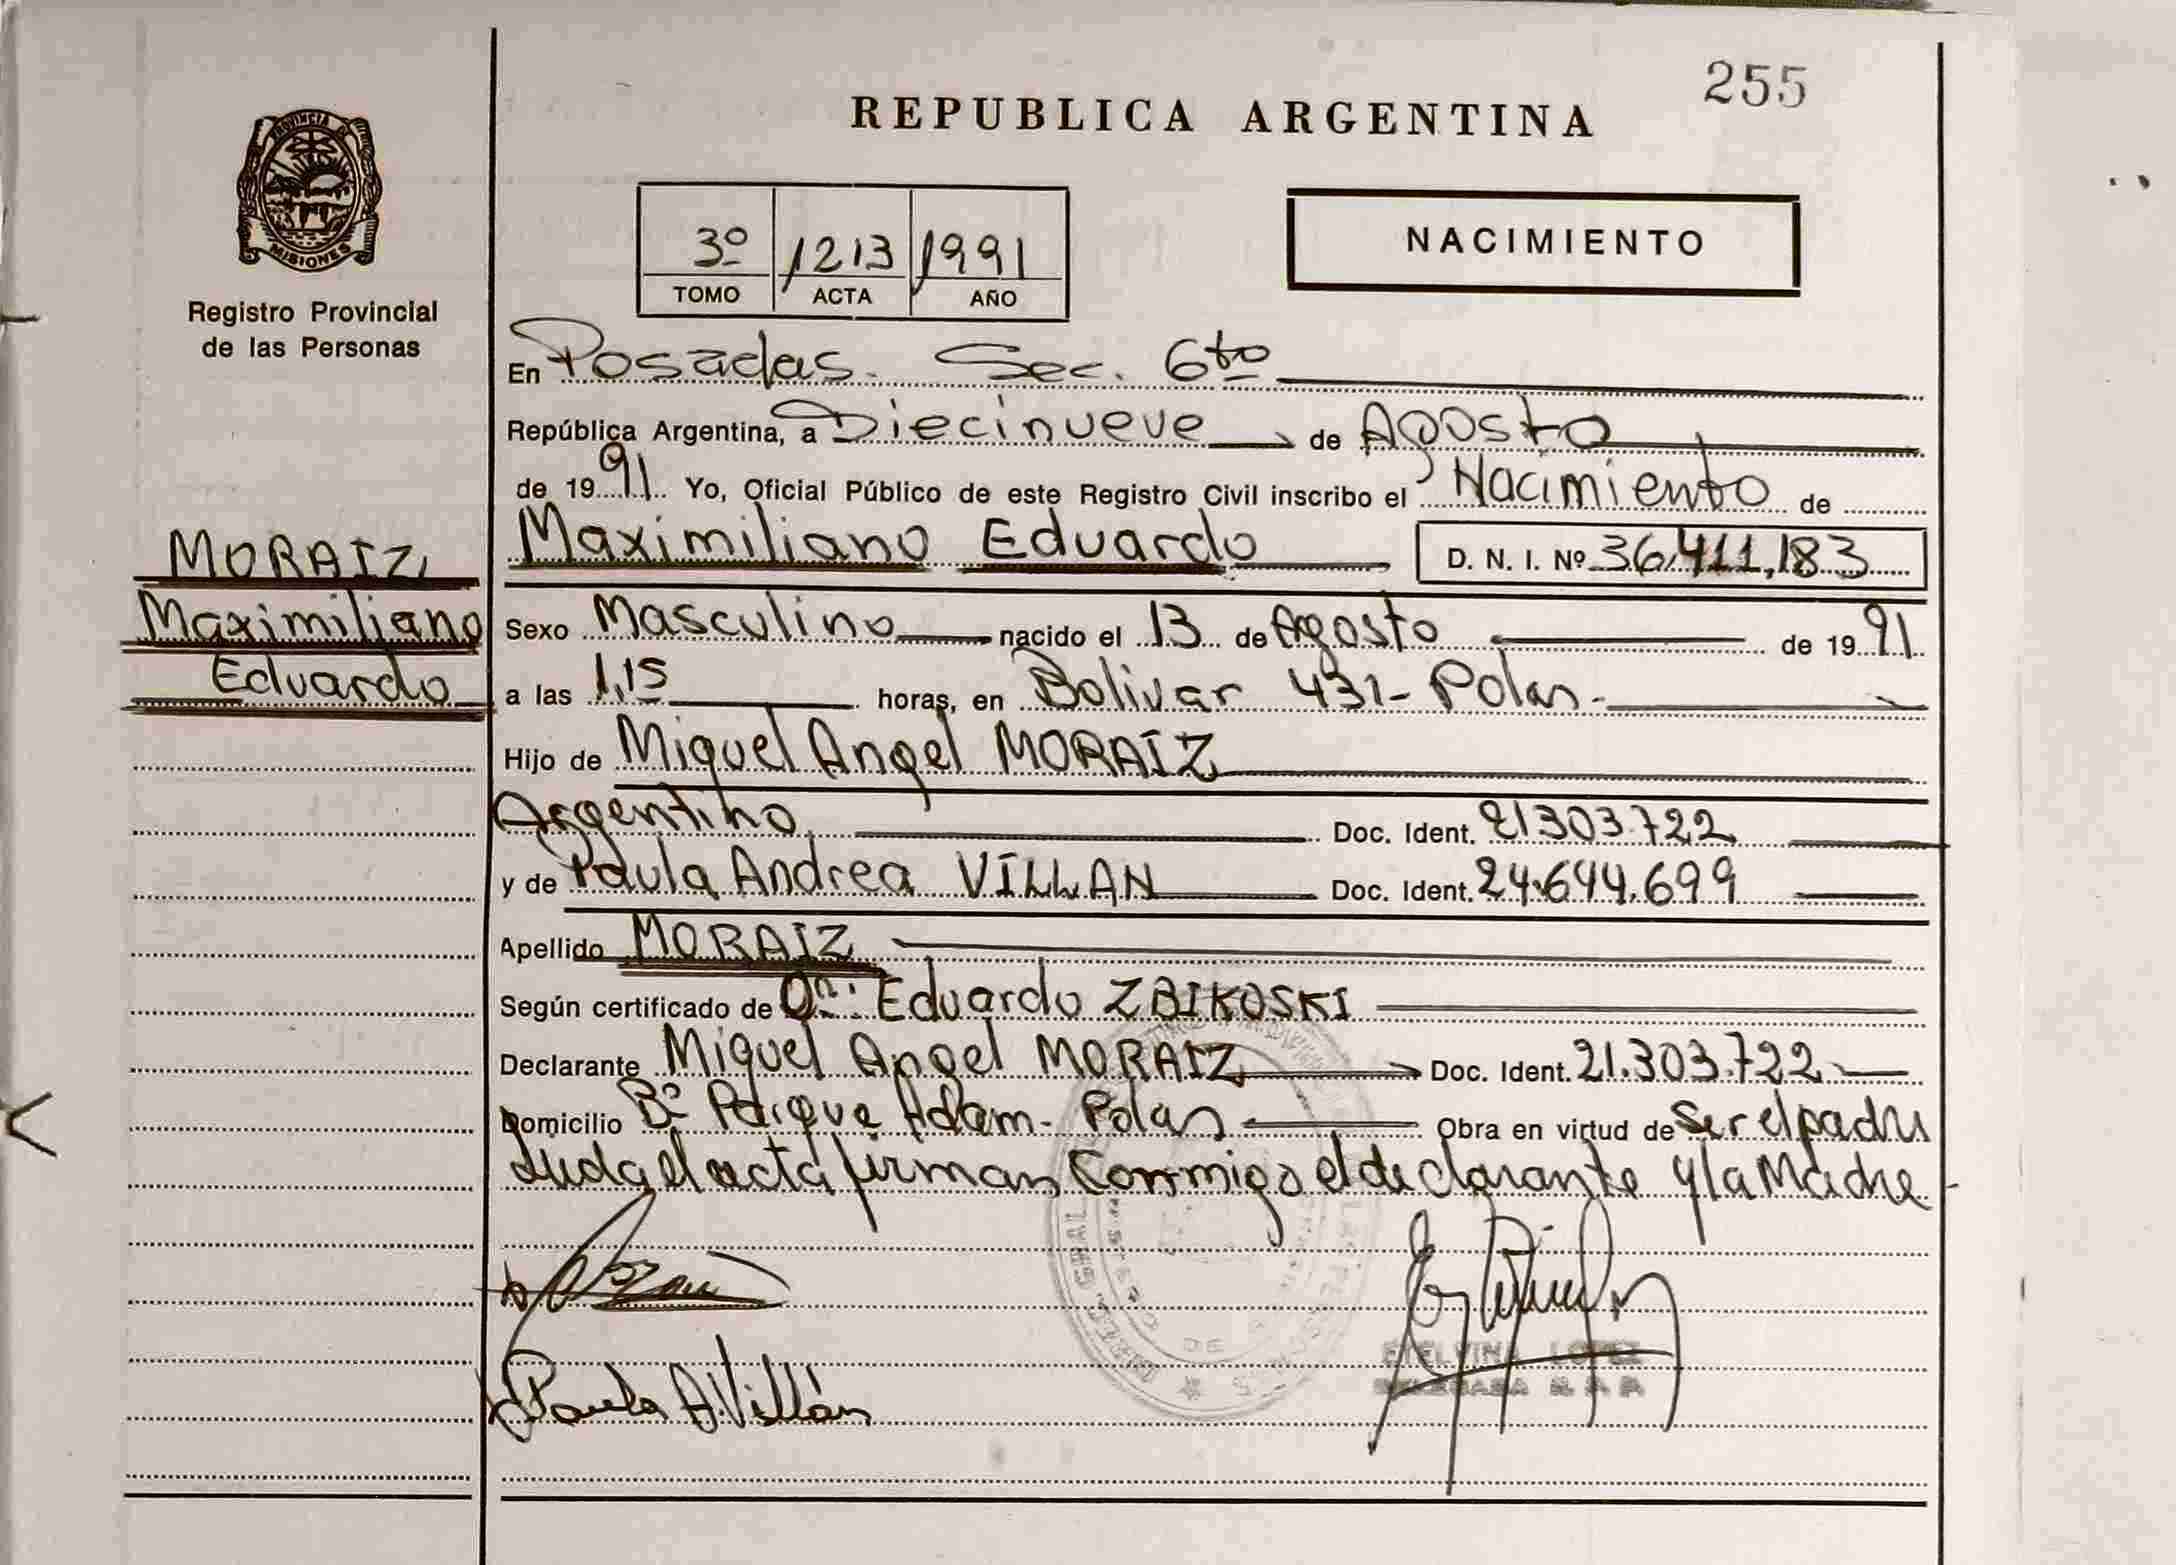 255
REPUBLICA ARGENTINA
PROVINCIA DE
MISIONES
Registro Provincial
de las Personas
3º 1213 1991
TOMO ACTA AÑO
NACIMIENTO
En Posadas. Sec. 6to
República Argentina, a Diecinueve de Agosto
de 1991 Yo, Oficial Público de este Registro Civil inscribo el Nacimiento de
Maximiliano Eduardo D. N. I. Nº 36.411.183
MORAIZ
Maximiliano
Eduardo
Sexo Masculino nacido el 13 de Agosto de 1991
a las 1,15 horas, en Bolivar 431- Pdas.
Hijo de Miguel Angel MORAIZ
Argentino Doc. Ident. 21.303.722
y de Paula Andrea VILLAN Doc. Ident. 24.644.699
Apellido MORAIZ
Según certificado de Eduardo ZBIKOSKI
Declarante Miguel Angel MORAIZ Doc. Ident. 21.303.722
Domicilio Bº Parque Adam- Pdas Obra en virtud de ser el padre
Leida el acta firman conmigo el declarante y la Madre
Paula A. Villán
ETELVINA LOPEZ
DELEGADA R P P